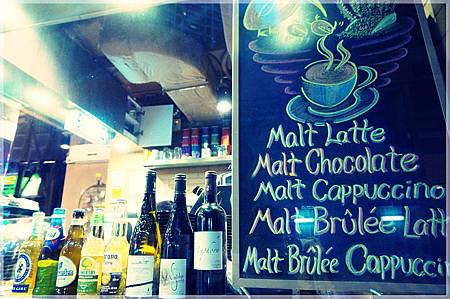 Malt Latte
Malt Chocolate
Malt Cappuccino
Malt Brûlée Latt
Malt Brûlée Cappuccin
Corona